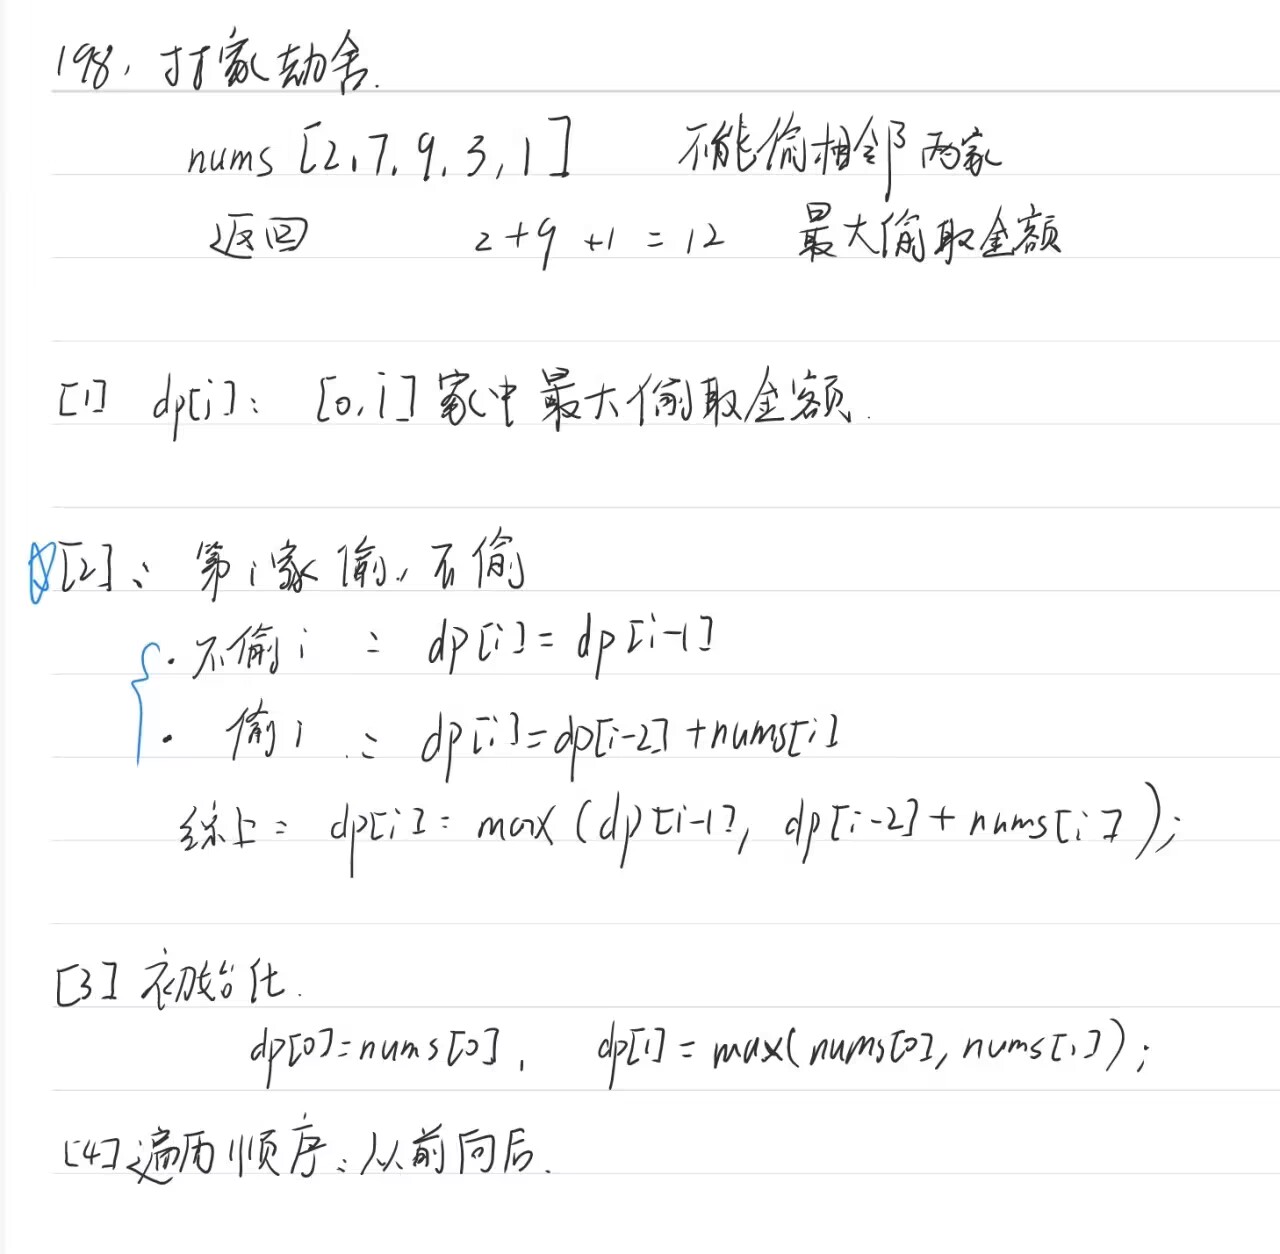 198. 打家劫舍.
nums [2,7,9,3,1] 不能偷相邻两家
返回 2+9+1=12 最大偷取金额
[1] dp[i]: [0,i]家中最大偷取金额.
[2]: 第i家偷,不偷
· 不偷i : dp[i]=dp[i-1]
· 偷i : dp[i]=dp[i-2]+nums[i]
综上: dp[i]=max(dp[i-1], dp[i-2]+nums[i]);
[3] 初始化.
dp[0]=nums[0], dp[1]=max(nums[0],nums[1]);
[4]遍历顺序:从前向后.